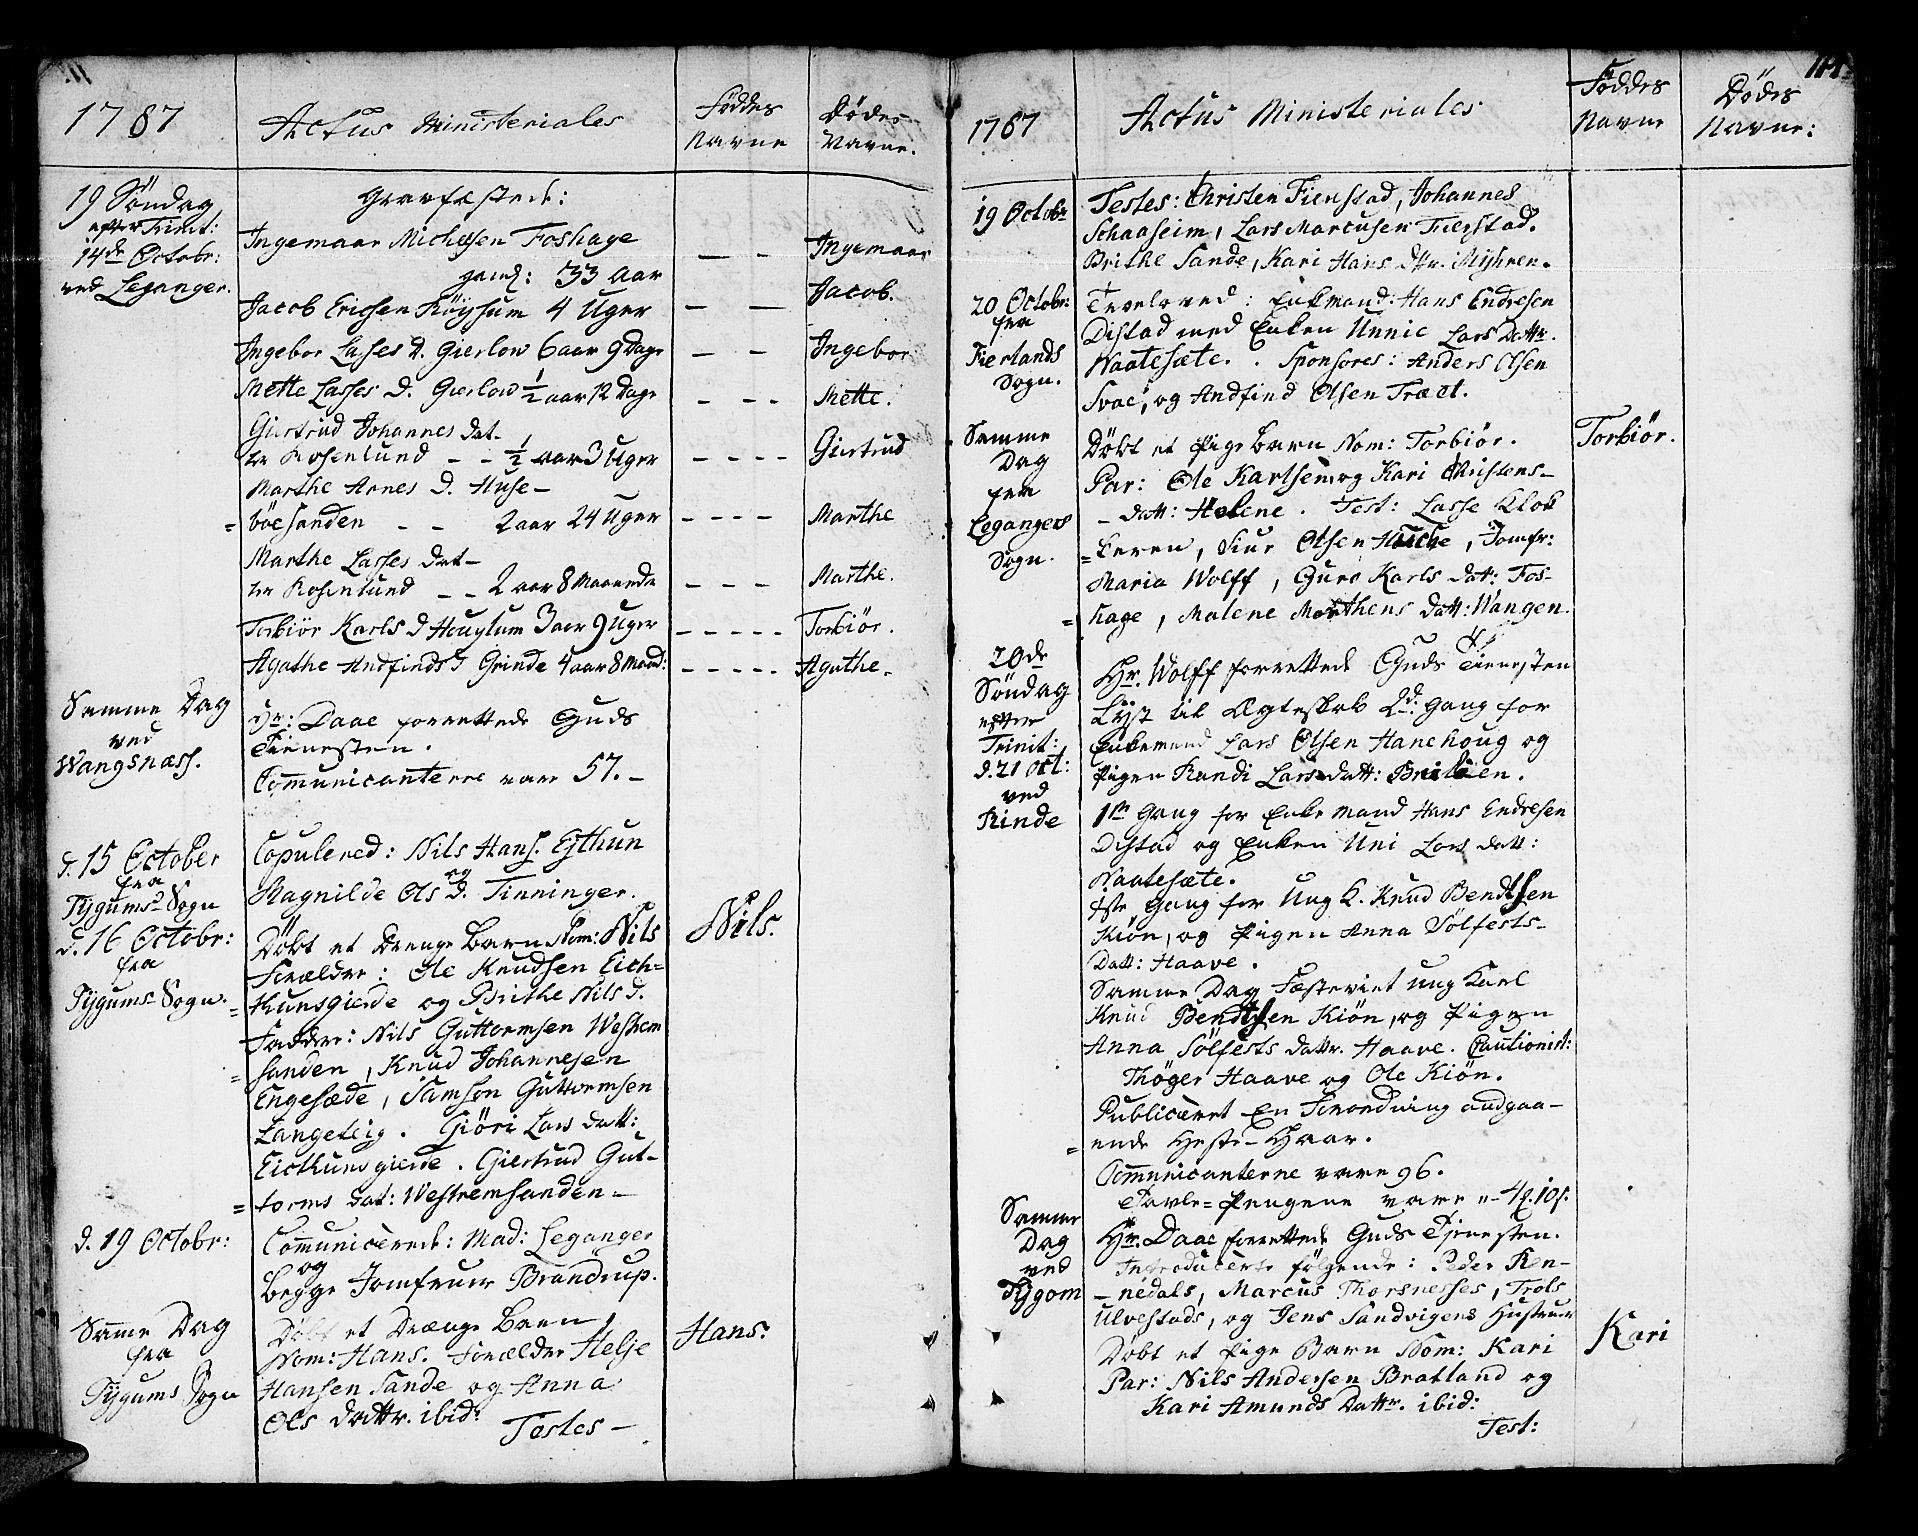 1787
Actus Ministeriales
Føddes
Navne
Dødes
Navne.
19 Søndag
efter Trinit:
14de Octobr:
ved Leganger.
Gravfæstede:
Ingemaar Michelsen Foshage
gaml: 33 Aar
Ingemaar
Jacob Ericsen Röysum 4 Uger
Jacob.
Ingebor Lasses D. Gierlow 6 aar 9 Dage
Ingebor
Mette Lasses D. Gierlow ½ aar 12 Dage
Mette.
Giertrud Johannes Dat-
ter Rosenlund - - ½ aar 3 Uger
Giertrud
Marthe Arnes D. Huse-
= böesanden - - 2 aar 24 Uger
Marthe
Marthe Lasses Dat-
ter Rosenlund - - 2 aar 8 Maaneder
Marthe.
Torbiör Karls D Houglum 3 aar 9 Uger
Torbiör.
Agathe Andfinds D Grinde 4 aar 8 Maand:
Agathe.
Samme Dag
ved
Wangsnæss.
Hr: Daae forrettede Guds
Tienesten.
Communicanterne vare 57.-
d. 15 October
fra
Tygums Sogn
Copulered: Nils Hans. Esthun
og
Ragnilde Ols D. Tinninger.
d. 16 Octobr:
fra
Tygums Sogn.
Döbt et Drenge Barn Nom: Nils
Nils.
Forældre: Ole Knudsen Eich-
= kunsgierde og Brithe Nils D.
Faddere: Nils Guttormsen Westrem
= sanden, Knud Johannesen
Engesæde, Samson Guttormsen
Langeteig. Giöri Lars Datt:
Eickunsgierde. Giertrud Gut-
= torms Dat: Westremsanden-
d. 19 Octobr:
Communicerede: Mad: Leganger
og
begge Jomfruer Brandrup.
Samme Dag
fra
Tygums Sogn
Döbt et Drænge Barn
Nom: Hans. Forældre Helje
Hans.
Hansen Sande og Anna
Ols Dattr. ibid:
Testes-
1787
Actus Ministeriales
Föddes
Navne
Dödes
Navne:
19 Octobr
Testes: Christen Fienstad, Johannes
Schaaseim, Lars Marcusen Fienstad.
Brithe Sande, Kari Hans Dttr. Myhren.
20 Octobr:
fra
Fierlands
Sogn.
Troeloved: Enkmand: Hans Endresen
Distad med Enken Unnie Lars Dattr.
Naatesæte. Sponsores: Anders Olsen
Svae, og Andfind Olsen Træet.
Samme
Dag
fra
Legangers
Sogn.
Döbt et Pige Barn Nom: Torbiör.
Torbiör.
Par: Ole Karlsen og Kari Christens-
- datt: Helene. Test: Lasse Klok
= keren, Siur Olsen, Jomfr:
Maria Wolff, Guro Karls Datt: Fos-
= hage, Malene Morthens Datt: Wangen.
20de
Söndag
efter
Trinit:
d. 21 Oct:
ved
Rinde
Hr. Wolff forrettede Guds Tienesten
Lyst til Ægteskab 2d: Gang for
Enkemand Lars Olsen Hanehoug og
Pigen Randi Lars datt:
1ste Gang for Enke mand Hans Endresen
Distad og Enken Uni Lars datt:
Naatesæte.
1ste Gang for Ung K. Knud Bendtsen
Kiön, og Pigen Anna Sölfests-
Datt: Haave.
Samme Dag Fæsteviet ung Karl
Knud Bendtsen Kiön, og Pigen
Anna Sölfests Dattr. Haave. Cautionist:
Thöger Haave og Ole Kiön.
Publiceret En Forordning andgaa-
= ende Heste-Haar.
Communicanterne vare 96.
Tavle-Pengene vare „-4 . 10 s.
Samme
Dag
ved
Tygom
Hr. Daae forrettede Guds Tienesten.
Introducerte fölgende: Peder Ren-
- nedals, Marcus Thorsnesses, Trols
Ulvestads, og Jens Sandvigens Hustruer
Döbt et Pige Barn Nom: Kari
Kari
Par: Nils Andersen Bratland og
Kari Amunds Dattr. ibid:
Test: